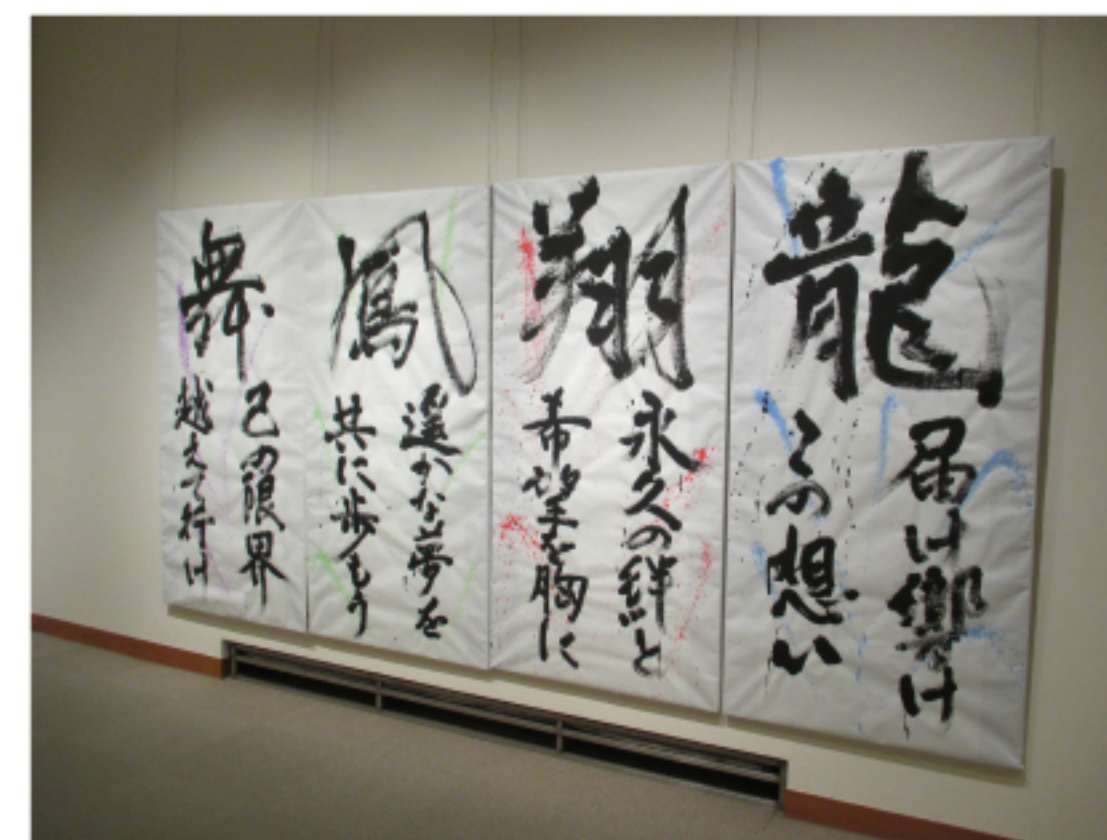 龍
届け響け
この想い
翔
永久の絆と
希望を胸に
鳳
遥かな夢を
共に歩もう
舞
己の限界
越えて行け